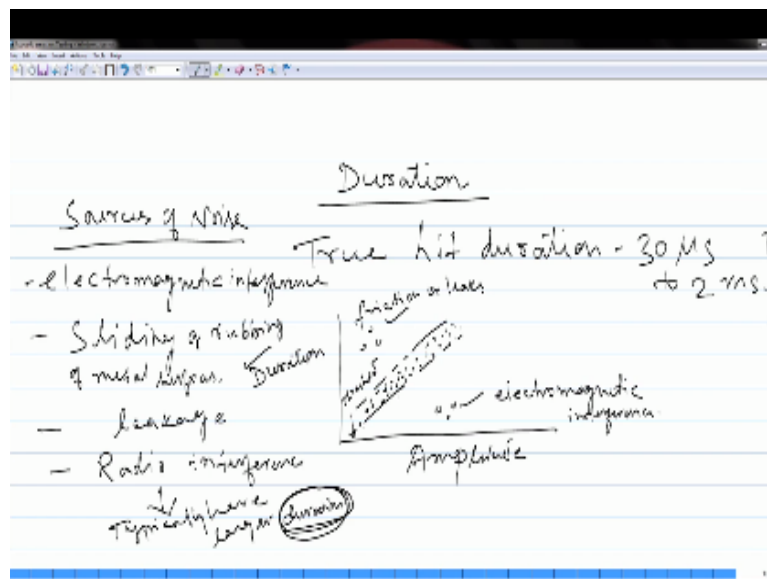 Duration
Sources of Noise
True hit duration - 30 μs
to 2 ms.
- electromagnetic interference
- Sliding or rubbing
of metal
- leakage
- Radio interference
Typically have
larger duration
friction or leaks
Duration
Amplitude
electromagnetic
interference